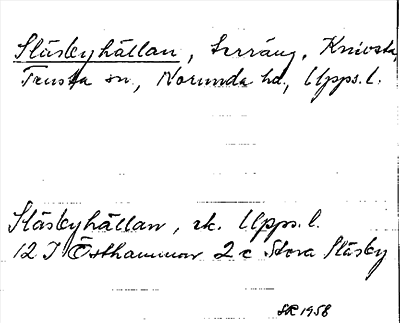 Släsbyhällan, Terräng, Knivsta,
Tensta sn, Norunda hd, Upps. l.
Släsbyhällan, rk. Upps. l.
12 I Östhammar 2 c Stora Släsby
SR 1958